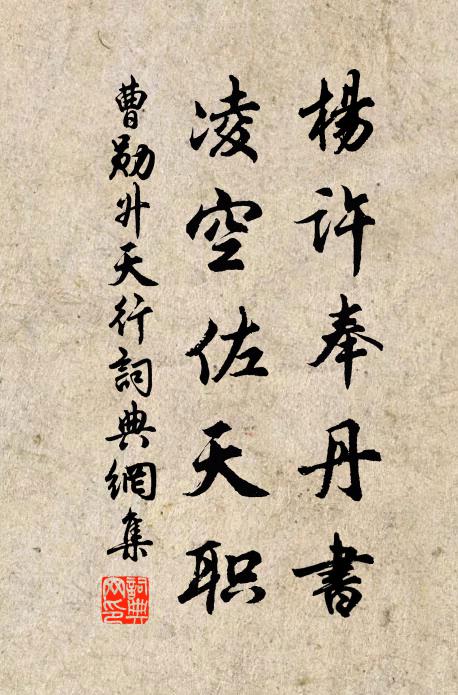 楊許奉丹書
凌空佐天职
曹勋升天行詞典網集
詞典網印